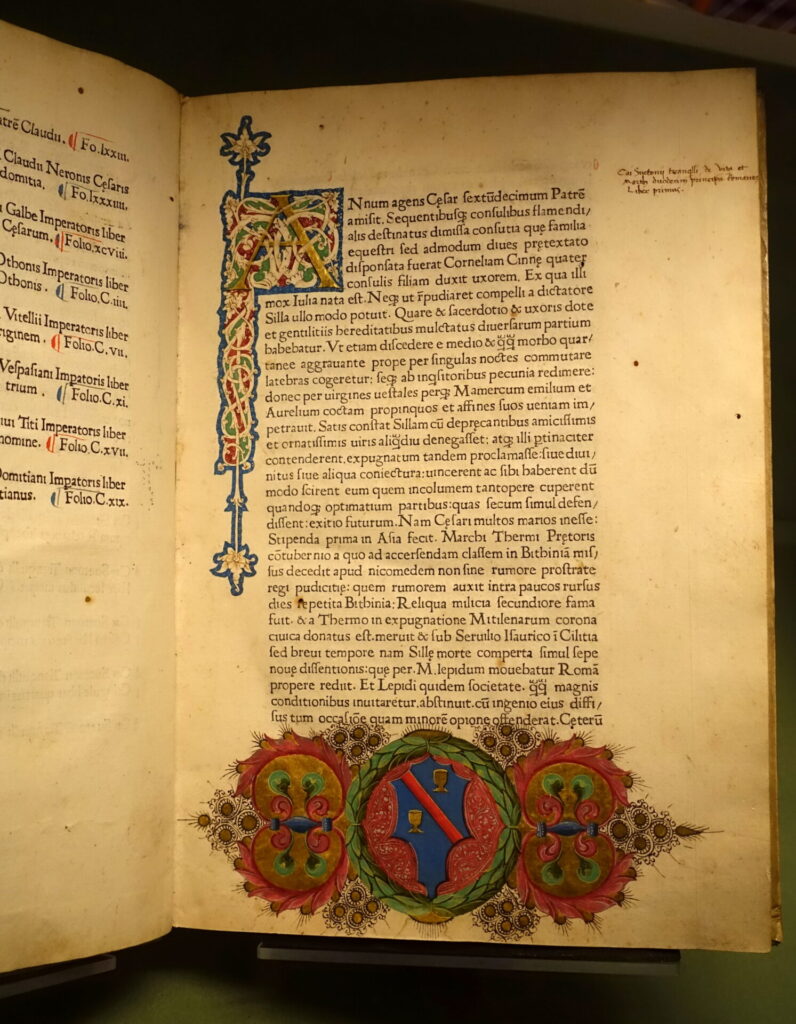 trē Claudii. Fo.lxxiii.
Claudii Neronis Cęsaris
domitia. Fo.lxxxiiii.
Galbe Imperatoris liber
Cęsarum. Folio.xcviii.
Othonis Imperatoris liber
Othonis. Folio.C.iiii.
Vitellii Imperatoris liber
riginem. Folio.C.vii.
Vespasiani Impatoris liber
trium. Folio.C.xi.
Titi Imperatoris liber
nomine. Folio.C.xvii.
Domitiani Impatoris liber
tianus. Folio.C.xix.
ANnum agens Cęsar sextūdecimum Patrē
amisit. Sequentibusq; consulibus flamendi/
alis destinatus dimissa consutia quę familia
equestri sed admodum diues pretextato
disponsata fuerat Corneliam Cinnę quater
consulis filiam duxit uxorem. Ex qua illi
mox Iulia nata est. Neq; ut rēpudiaret compelli a dictatore
Silla ullo modo potuit. Quare & sacerdotio & uxoris dote
et gentilitiis hereditatibus mulctatus diuersarum partium
habebatur. Vt etiam discedere e medio & q̄q̄ morbo quar/
tanee aggrauante prope per singulas noctes commutare
latebras cogeretur: seq; ab inqsitoribus pecunia redimere:
donec per uirgines uestales perq; Mamercum emilium et
Aurelium coctam propinquos et affines suos ueniam im/
petrauit. Satis constat Sillam cū deprecantibus amicissimis
et ornatissimis uiris aliqdiu denegasset: atq; illi ptinaciter
contenderent. expugnatum tandem proclamasse: siue diui/
nitus siue aliqua coniectura: uincerent ac sibi haberent dū
modo scirent eum quem incolumem tantopere cuperent
quandoq; optimatium partibus: quas secum simul defen/
dissent: exitio futurum. Nam Cęsari multos marios inesse:
Stipenda prima in Asia fecit. Marchi Thermi Pretoris
cōtubernio a quo ad accersendam classem in Bithiniā mis/
sus decedit apud nicomedem non sine rumore prostrate
regi pudicitię: quem rumorem auxit intra paucos rursus
dies repetita Bithinia: Reliqua milicia secundiore fama
fuit. & a Thermo in expugnatione Mitilenarum corona
ciuica donatus est. meruit & sub Seruilio Isaurico ī Cilitia
sed breui tempore nam Sillę morte comperta simul sepe
nouę dissentionis: que per. M. lepidum mouebatur Romā
propere rediit. Et Lepidi quidem societate. q̄q̄ magnis
conditionibus inuitaretur. abstinuit. cū ingenio eius diffi/
sus tum occasiōe quam minorē opione offenderat. Cęterū
Liber primus.